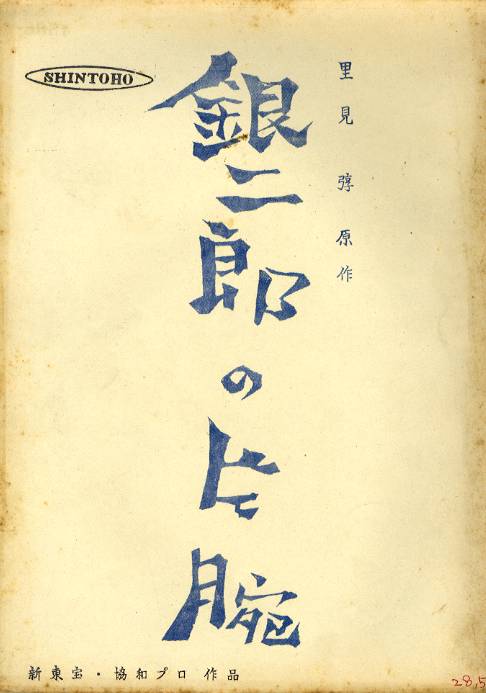 SHINTOHO
里見弴原作
銀二郎の片腕
新東宝・協和プロ作品
28,5